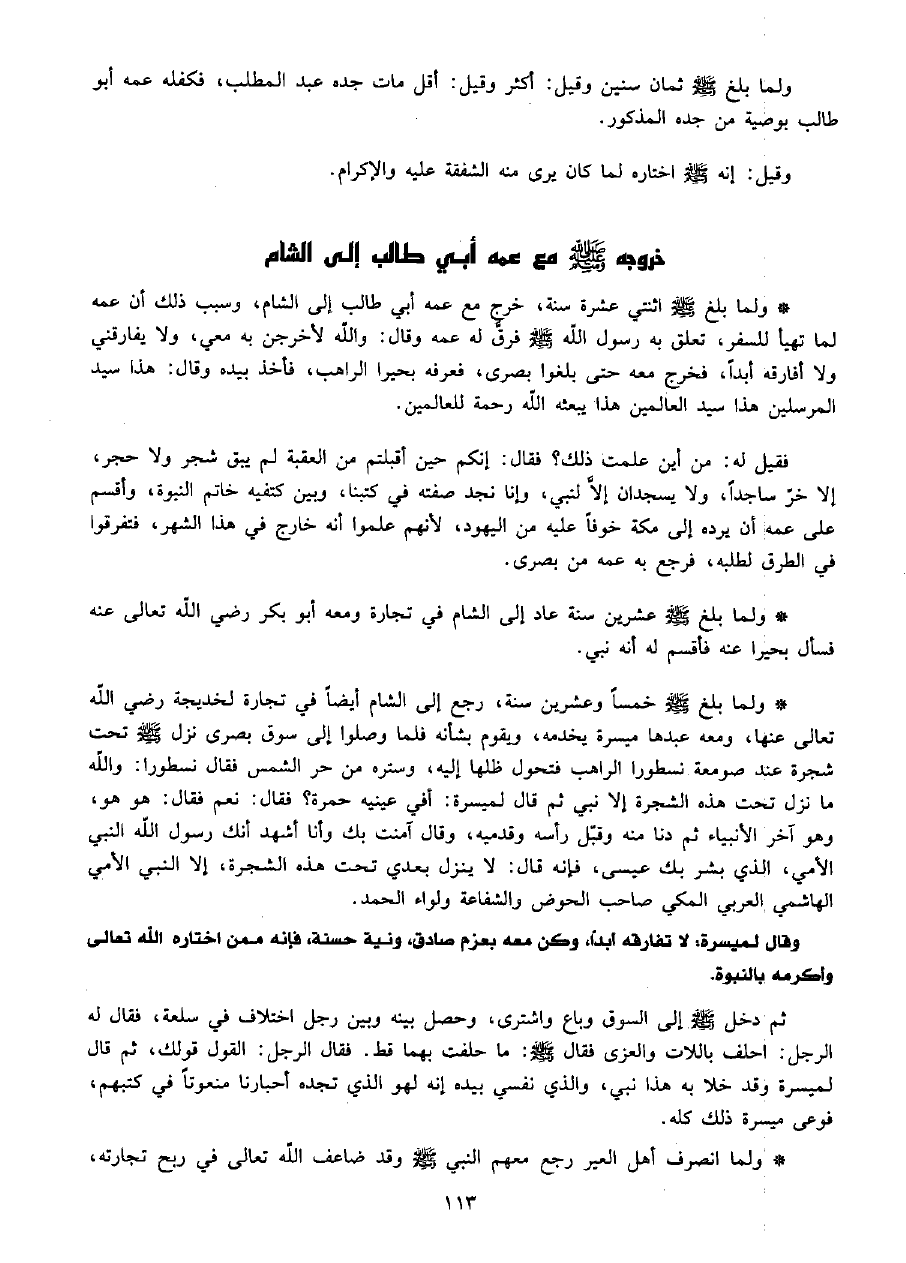 ولما بلغ ﷺ ثمان سنين وقيل: أكثر وقيل: أقل مات جده عبد المطلب، فكفله عمه أبو
طالب بوصية من جده المذكور.
وقيل: إنه ﷺ اختاره لما كان يرى منه الشفقة عليه والإكرام.
خروجه ﷺ مع عمه أبي طالب إلى الشام
* ولما بلغ ﷺ اثنتي عشرة سنة، خرج مع عمه أبي طالب إلى الشام، وسبب ذلك أن عمه
لما تهيأ للسفر، تعلق به رسول الله ﷺ فرقَّ له عمه وقال: والله لأخرجن به معي، ولا يفارقني
ولا أفارقه أبداً، فخرج معه حتى بلغوا بصرى، فعرفه بحيرا الراهب، فأخذ بيده وقال: هذا سيد
المرسلين هذا سيد العالمين هذا يبعثه الله رحمة للعالمين.
فقيل له: من أين علمت ذلك؟ فقال: إنكم حين أقبلتم من العقبة لم يبق شجر ولا حجر،
إلا خرّ ساجداً، ولا يسجدان إلاَّ لنبي، وإنا نجد صفته في كتبنا، وبين كتفيه خاتم النبوة، وأقسم
على عمه أن يرده إلى مكة خوفاً عليه من اليهود، لأنهم علموا أنه خارج في هذا الشهر، فتفرقوا
في الطرق لطلبه، فرجع به عمه من بصرى.
* ولما بلغ ﷺ عشرين سنة عاد إلى الشام في تجارة ومعه أبو بكر رضي الله تعالى عنه
فسأل بحيرا عنه فأقسم له أنه نبي.
* ولما بلغ ﷺ خمساً وعشرين سنة، رجع إلى الشام أيضاً في تجارة لخديجة رضي الله
تعالى عنها، ومعه عبدها ميسرة يخدمه، ويقوم بشأنه فلما وصلوا إلى سوق بصرى نزل ﷺ تحت
شجرة عند صومعة نسطورا الراهب فتحول ظلها إليه، وستره من حر الشمس فقال نسطورا: والله
ما نزل تحت هذه الشجرة إلا نبي ثم قال لميسرة: أفي عينيه حمرة؟ فقال: نعم فقال: هو هو،
وهو آخر الأنبياء ثم دنا منه وقبّل رأسه وقدميه، وقال آمنت بك وأنا أشهد أنك رسول الله النبي
الأمي، الذي بشر بك عيسى، فإنه قال: لا ينزل بعدي تحت هذه الشجرة، إلا النبي الأمي
الهاشمي العربي المكي صاحب الحوض والشفاعة ولواء الحمد.
وقال لميسرة: لا تفارقه أبداً، وكن معه بعزم صادق، ونية حسنة، فإنه ممن اختاره الله تعالى
وأكرمه بالنبوة.
ثم دخل ﷺ إلى السوق وباع واشترى، وحصل بينه وبين رجل اختلاف في سلعة، فقال له
الرجل: احلف باللات والعزى فقال ﷺ: ما حلفت بهما قط. فقال الرجل: القول قولك، ثم قال
لميسرة وقد خلا به هذا نبي، والذي نفسي بيده إنه لهو الذي تجده أحبارنا منعوتاً في كتبهم،
فوعى ميسرة ذلك كله.
* ولما انصرف أهل العير رجع معهم النبي ﷺ وقد ضاعف الله تعالى في ربح تجارته،
١١٣